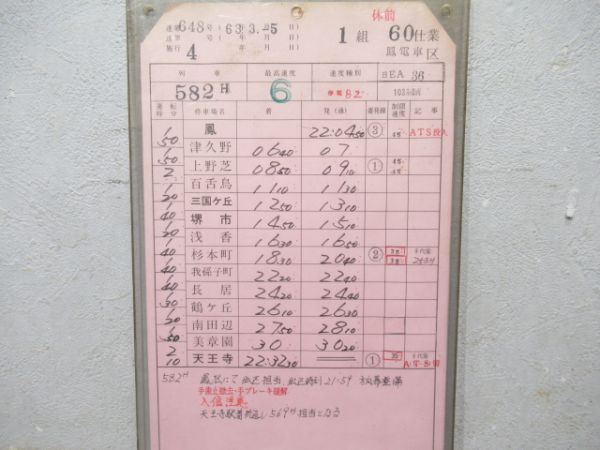 休前
達 648号 (63年3月5日)
施行 4 1組 60仕業
鳳電車区
列車 最高速度 速度種別 EA 36
582H 6 停電82
運転時分 停車場名 着 発(通) 着発線 制限速度 記事
鳳 22:04 50 ③ ATS投入
1 50 津久野 06 40 07
1 50 上野芝 08 50 09 10 ①
2 百舌鳥 11 10 11 30
1 20 三国ケ丘 12 50 13 10
1 40 堺市 14 50 15 10
1 20 浅香 16 30 16 50
1 40 杉本町 18 30 20 40 ② 35 35
1 40 我孫子町 22 20 22 40
1 40 長居 24 20 24 40
1 30 鶴ケ丘 26 10 26 30
1 20 南田辺 27 50 28 10
1 50 美章園 30 30 20
2 10 天王寺 22:32 30 ①
582H 鳳区にて 出区担当、出区時刻 21-59
手歯止除去・手ブレーキ緩解
入信注意
天王寺駅着折返し569H担当となる